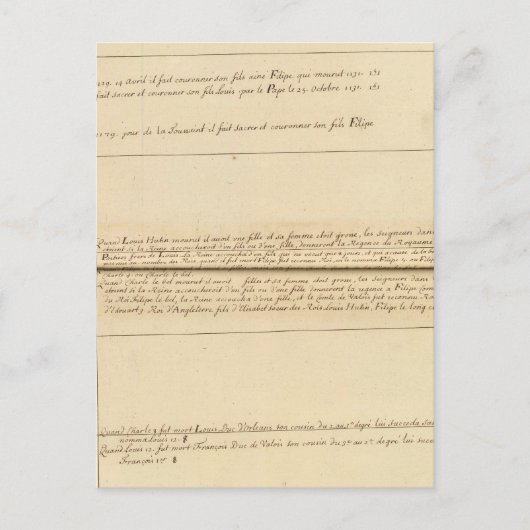 1129. 14 Avril il fait couronner son fils ainé Filipe qui mourut 1131.
fait sacrer et couronner son fils Louis par le Pape le 25. Octobre 1131.
1179. jour de la Toussaint il fait sacrer et couronner son fils Filipe
Quand Louis Hutin mourut il avoit une fille et sa femme etoit grosse, les seigneurs dans
si la Reine accoucheroit d'un fils ou d'une fille, donnerent la Regence du Royaume
frere de Louis. La Reine accoucha d'un fils qui ne vecut que 8 jours, et qui
nombre des Rois, quand il fut mort Filipe fut reconnu Roi, on le nomma Filipe 5. ou Filipe
Charle 4. ou Charle le bel.
Quand Charle le bel mourut il avoit filles et sa femme etoit grosse, les seigneurs dans
si la Reine accoucheroit d'un fils ou d'une fille donnerent la regence a Filipe
du Roi Filipe le bel, la Reine accoucha d'une fille, et le Comte de Valois fut reconnu
d'Edouart 3 Roi d'Angleterre fils d'Elisabet soeur des Rois Louis Hutin, Filipe le long
Quand Charle 8 fut mort Louis Duc d'Orleans son cousin du 2 au 3e degré lui succeda
nomma Louis 12.
Quand Louis 12. fut mort François Duc de Valois son cousin du 3e au 2e degré lui
François 1r